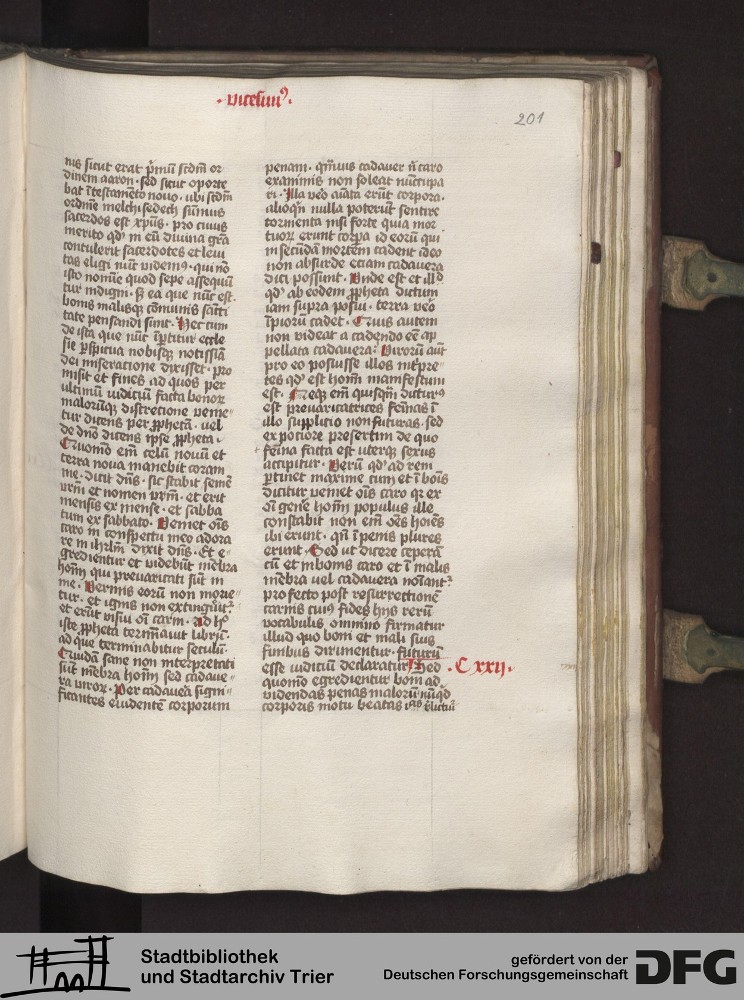 ·vicesim⁹·
201
nis sicut erat p̄mū scdm or
dinem aaron· sed sicut oporte
bat ī testamēto nouo· ubi scdm
ordinē melchisedech sūmus
sacerdos est xpūs· pro cuius
merito qd' in eū diuina grā
contulerit sacerdotes et leui
tas eligi nūc videm⁹· qui nō
isto nomine quod sepe assequū
tur indigni· s; ea que nūc est
bonis malisq; cōmunis sācti
tate pensandi sunt· Hec cum
de ista que nūc īpertitur eccle
sie p̄spicua nobisq; notissīa
dei miseratione dixisset· pro
misit et fines ad quos per
ultimū iudiciū facta bonor
malorūq; discretione venie
tur dicens per p̄phetā· vel
de dn̄o dicens ipse p̄pheta·
Quomō em̄ celū nouū et
terra noua manebit coram
me· dicit dn̄s· sic stabit semē
vr̄m et nomen vr̄m· et erit
mensis ex mense· et sabba
tum ex sabbato· Veniet oīs
caro in conspectu meo adora
re in ihrlm̄ dixit dn̄s· Et e
gredientur et videbūt mēbra
hom̄ qui preuaricati sūt in
me· Vermis eorū non morie
tur· et ignis non extinguet²
et erūt visui oī carni· Ad h°
iste p̄pheta term̄auit librū·
ad que terminabitur seculū·
Quidā sane non interpretati
sūt mēbra hom̄ sed cadaue
ra viror· Per cadauera signi
ficantes euidentē corporum
penam· q̄muis cadauer n̄ caro
exanimis non soleat nūcupa
ri· Illa vero aīata erūt corpora·
alioqn̄ nulla poterūt sentire
tormenta nisi forte quia mor
tuor erunt corpa id eorū qui
in secūdā mortem cadent ideo
non absurde etiam cadauera
dici possunt· Vnde est et illd
qd' ab eodem p̄pheta dictum
iam supra posui· terra vero
īpiorū cadet· Quis autem
non videat a cadendo eē ap
pellata cadauera· Virorū aūt
pro eo posuisse illos int̄pre
tes qd' est hom̄ manifestum
est· Neq; em̄ quisq̄m dictur⁹
est preuaricatrices feīnas ī
illo supplicio non futuras· sed
ex potiore presertim de quo
feīna facta est uterq; sexus
accipitur· Verū qd' ad rem
p̄tinet maxime cum et ī boīs
dicitur veniet oīs caro qr ex
oī gene hom̄ populus ille
constabit non em̄ oēs hoīes
ibi erunt· qn̄ ī penis plures
erunt· Sed ut dicere ceperā
cū et in bonis caro et ī malis
mēbra uel cadauera noīant²
profecto post resurrectionē
carnis cui⁹ fides hijs rerū
vocabulis omnino firmatur
illud quo boni et mali suis
finibus dirimentur· futurū
esse iudiciū declaratur· Sed ·C xxij·
quomō egredientur boni ad
videndas penas malorū nūqd
corporis motu beatas
Stadtbibliothek
und Stadtarchiv Trier
gefördert von der
Deutschen Forschungsgemeinschaft
DFG